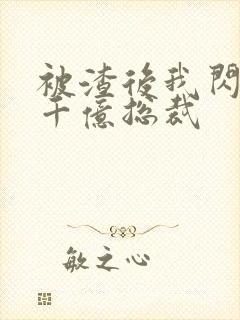 被渣後我閃
千億總裁
敏之心